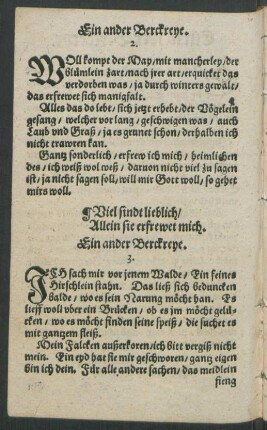 Ein ander Berckreye.
2.
WOll kompt der May/mit mancherley/der
Blümlein zart/nach jrer art/erquicket das
verdorben was/ja durch winters gewalt/
das erfrewet sich manigfalt.
Alles das do lebt/sich jetzt erhebt/der Vögelein
gesang/welcher vor lang/geschwigen was/auch
Laub vnd Graß/ja es grunet schon/derhalben ich
nicht trawren kan.
Gantz sonderlich/erfrew ich mich/heimlichen
des/ich weiß wol weß/daruon nicht viel zu sagen
ist/ja nicht sagen soll/will mir Gott woll/so gehet
mirs woll.
¶Viel sindt lieblich/
Allein sie erfrewet mich.
Ein ander Berckreye.
3.
ICH sach mir vor jenem Walde/Ein feines
Hirschlein stahn. Das ließ sich beduncken
balde/wo es sein Narung möcht han. Es
lieff woll vber ein Brücken/ob es jm möcht gelü-
cken/wo es möcht finden seine speiß/die suchet es
mit gantzem fleiß.
Mein Falcken außerkoren/ich bitt vergiß nicht
mein. Ein eyd hat sie mir geschworen/gantz eigen
bin ich dein. Für alle andere sachen/das meidlein
fieng